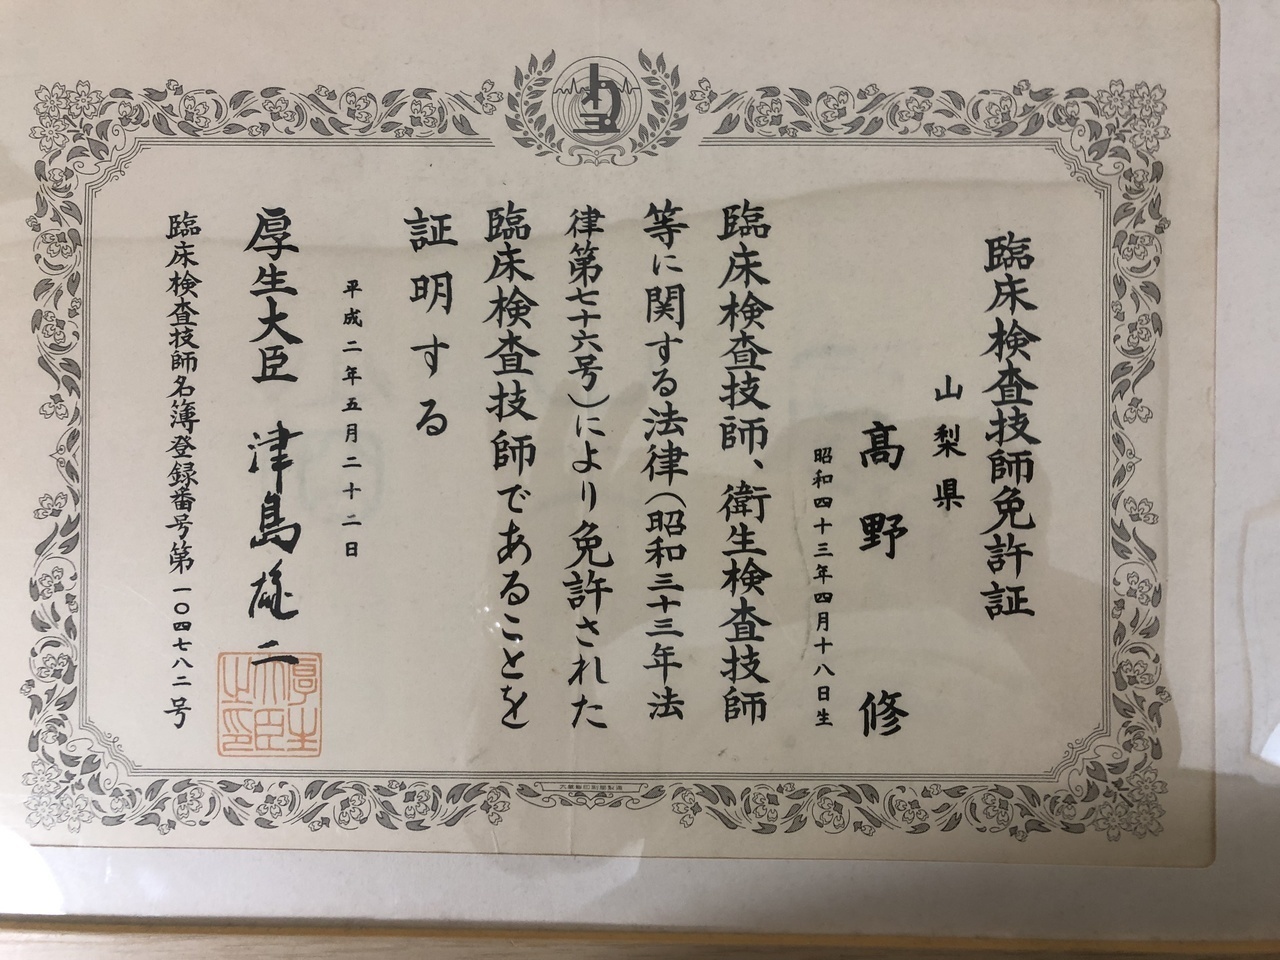 臨床検査技師免許証
山梨県
高野 修
昭和四十三年四月十八日生
臨床検査技師、衛生検査技師
等に関する法律（昭和三十三年法
律第七十六号）により免許された
臨床検査技師であることを
証明する
平成二年五月二十二日
厚生大臣 津島雄二
臨床検査技師名簿登録番号第一〇四七八二号
厚生
大臣
之印
大蔵省印刷局製造